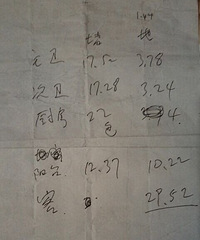 1.44
墙 地
主卫 17.52 3.78
次卫 17.28 3.24
厨房 22 4.
包
阳台 12.37 10.22
客 29.52